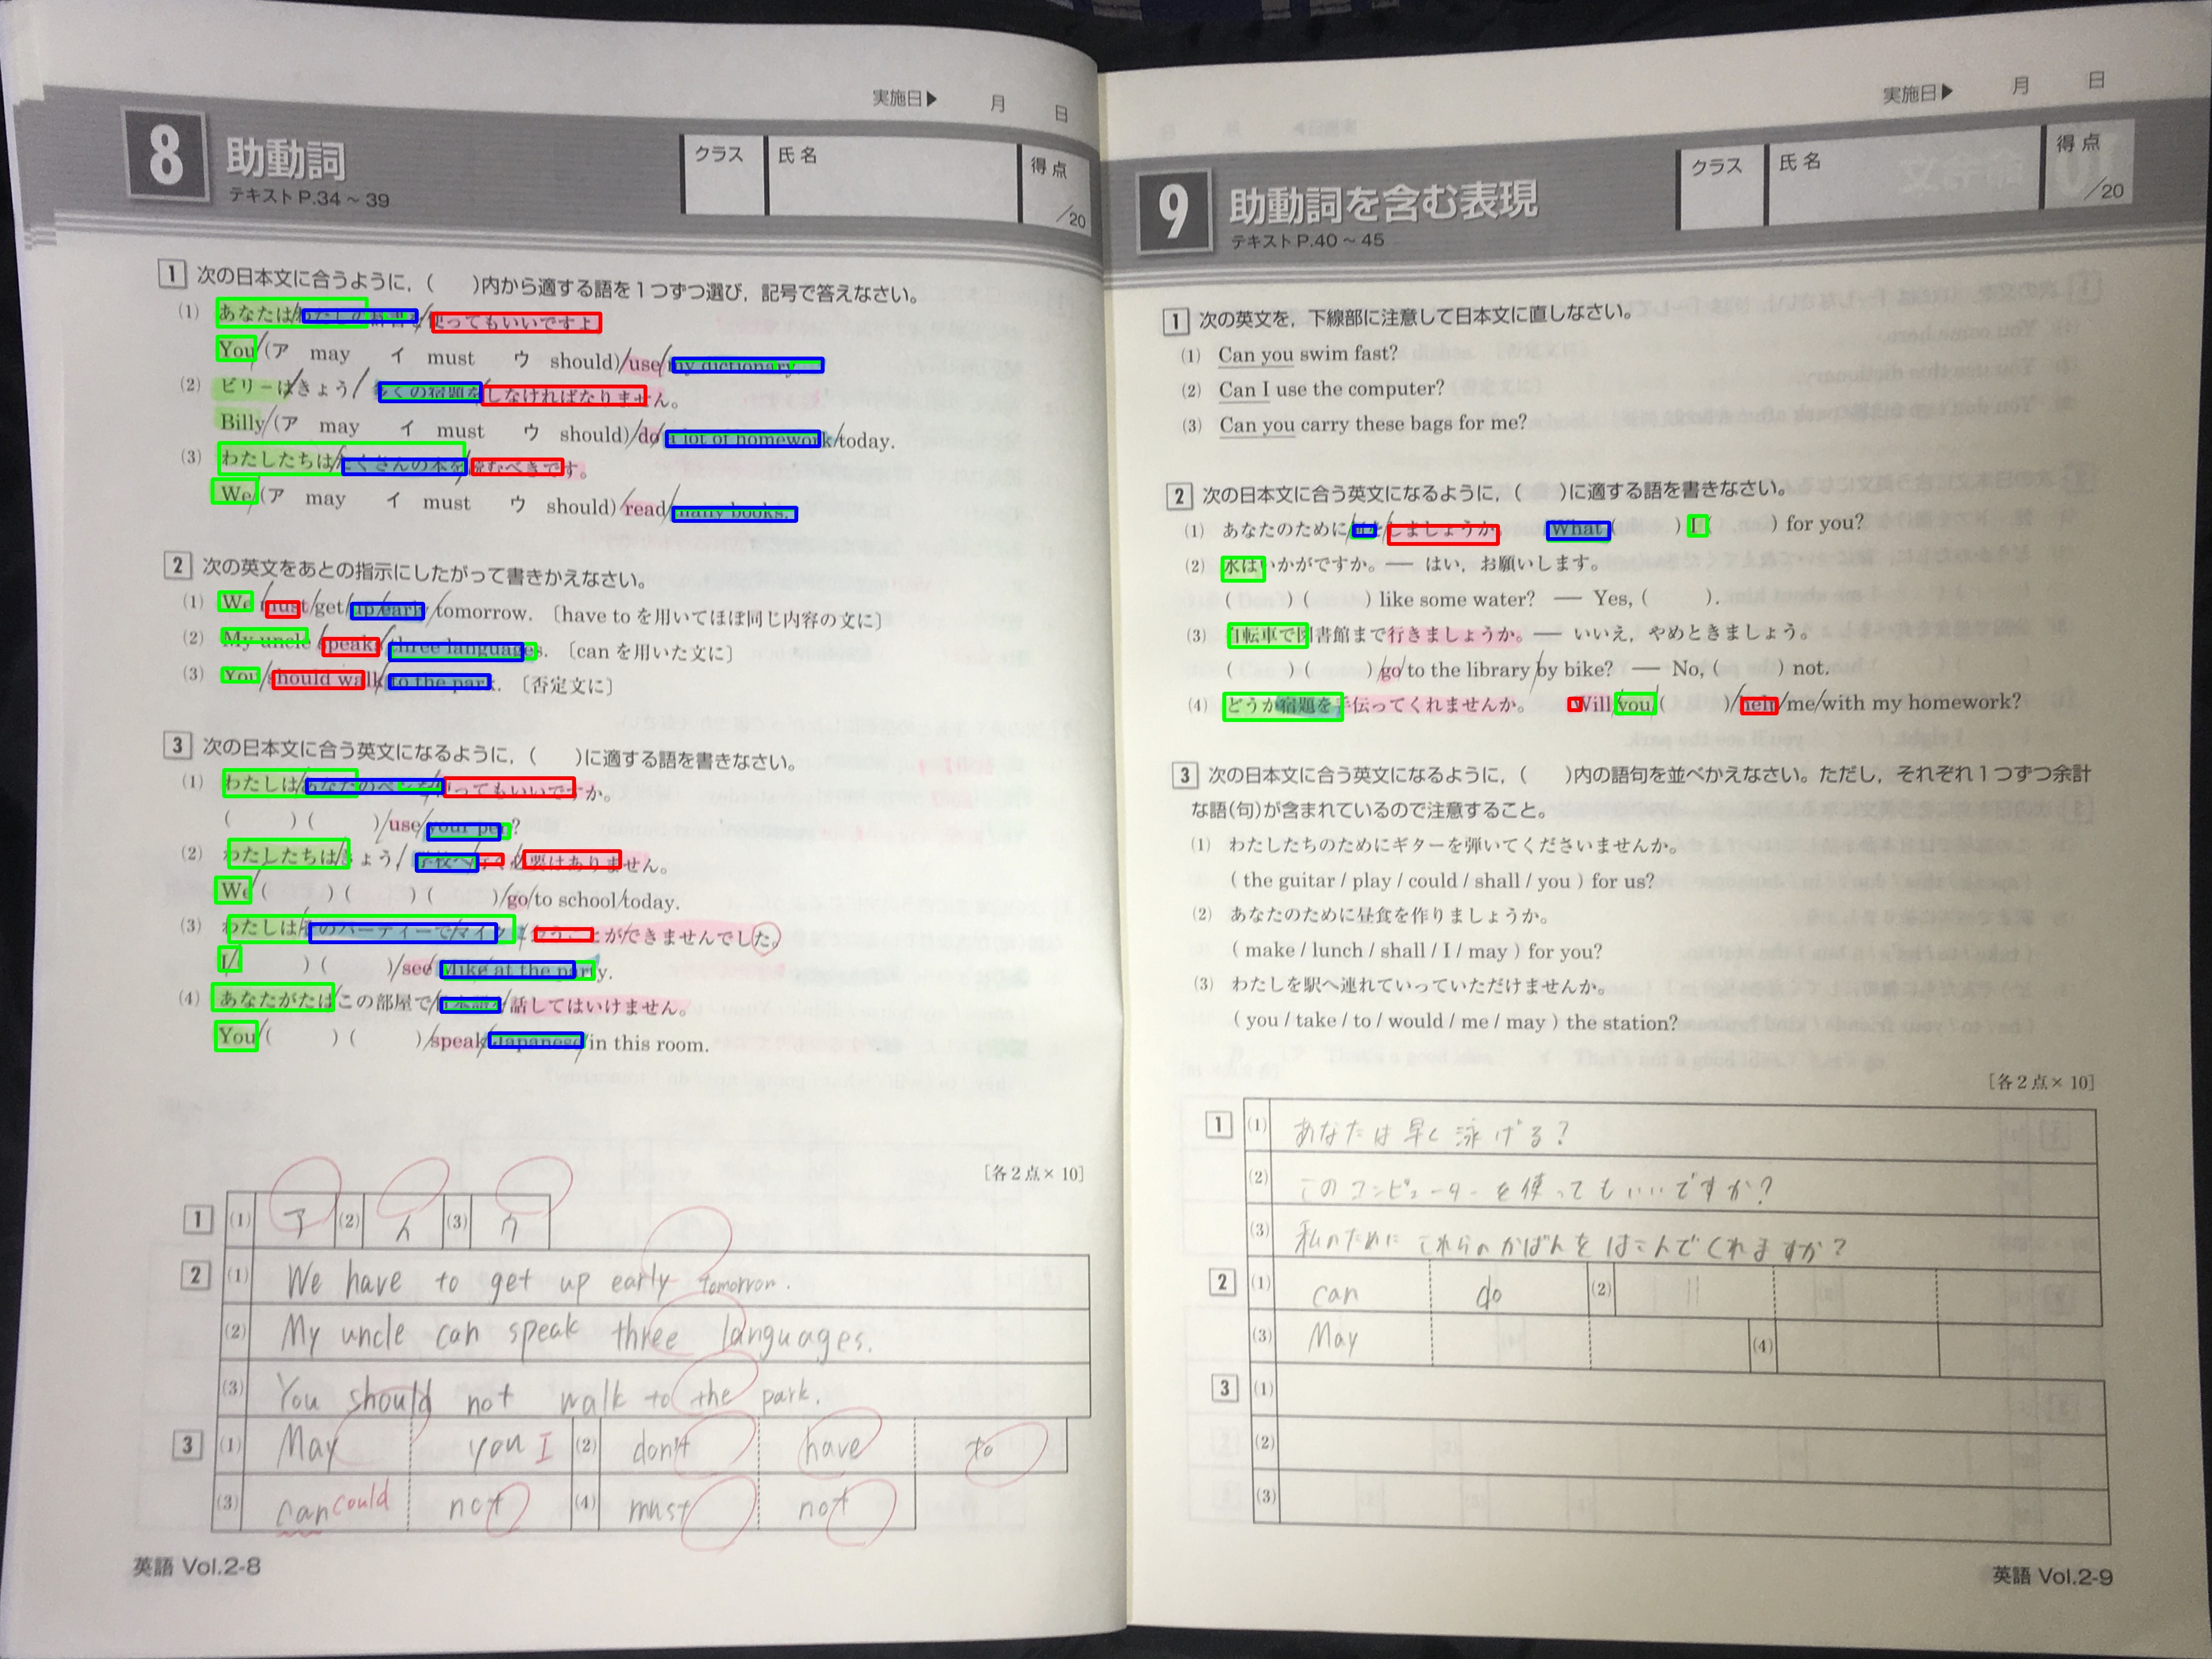 実施日▶ 月 日
8 助動詞
テキストP.34～39
クラス 氏名 得点 /20
1 次の日本文に合うように，( )内から適する語を1つずつ選び，記号で答えなさい。
(1) あなたは/わたしの辞書を/使ってもいいですよ
You/(ア may イ must ウ should)/use/my dictionary.
(2) ビリーは/きょう/多くの宿題を/しなければなりません。
Billy/(ア may イ must ウ should)/do/a lot of homework/today.
(3) わたしたちは/たくさんの本を/読むべきです。
We/(ア may イ must ウ should)/read/many books.
2 次の英文をあとの指示にしたがって書きかえなさい。
(1) We/must/get/up/early/tomorrow. 〔have toを用いてほぼ同じ内容の文に〕
(2) My uncle/speaks/three languages. 〔canを用いた文に〕
(3) You/should walk/to the park. 〔否定文に〕
3 次の日本文に合う英文になるように，( )に適する語を書きなさい。
(1) わたしは/あなたのペンを/使ってもいいですか。
( ) ( )/use/your pen?
(2) わたしたちは/きょう/学校へ/行く必要はありません。
We/( ) ( ) ( )/go/to school/today.
(3) わたしは/そのパーティーで/マイクに/会うことができませんでした。
I/( ) ( )/see/Mike at the party.
(4) あなたがたは/この部屋で/日本語を/話してはいけません。
You/( ) ( )/speak/Japanese/in this room.
[各2点×10]
1 (1) ア (2) イ (3) ウ
2 (1) We have to get up early tomorrow.
(2) My uncle can speak three languages.
(3) You should not walk to the park.
3 (1) May you I (2) don't have to
(3) can could not (4) must not
英語 Vol.2-8
実施日▶ 月 日
9 助動詞を含む表現
テキストP.40～45
クラス 氏名 得点 /20
1 次の英文を，下線部に注意して日本文に直しなさい。
(1) Can you swim fast?
(2) Can I use the computer?
(3) Can you carry these bags for me?
2 次の日本文に合う英文になるように，( )に適する語を書きなさい。
(1) あなたのために/何を/しましょうか。 What ( ) I ( ) for you?
(2) 水はいかがですか。— はい，お願いします。
( ) ( ) like some water? — Yes, ( ).
(3) 自転車で図書館まで行きましょうか。— いいえ，やめときましょう。
( ) ( )/go/to the library/by bike? — No, ( ) not.
(4) どうか宿題を手伝ってくれませんか。 Will/you/( )/help/me/with my homework?
3 次の日本文に合う英文になるように，( )内の語句を並べかえなさい。ただし，それぞれ1つずつ余計
な語(句)が含まれているので注意すること。
(1) わたしたちのためにギターを弾いてくださいませんか。
( the guitar / play / could / shall / you ) for us?
(2) あなたのために昼食を作りましょうか。
( make / lunch / shall / I / may ) for you?
(3) わたしを駅へ連れていっていただけませんか。
( you / take / to / would / me / may ) the station?
[各2点×10]
1 (1) あなたは早く泳げる？
(2) このコンピューターを使ってもいいですか？
(3) 私のためにこれらのかばんをはこんでくれますか？
2 (1) can do (2)
(3) May (4)
3 (1)
(2)
(3)
英語 Vol.2-9